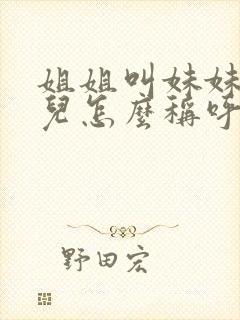 姐姐叫妹妹
兒怎麼稱呼
野田宏